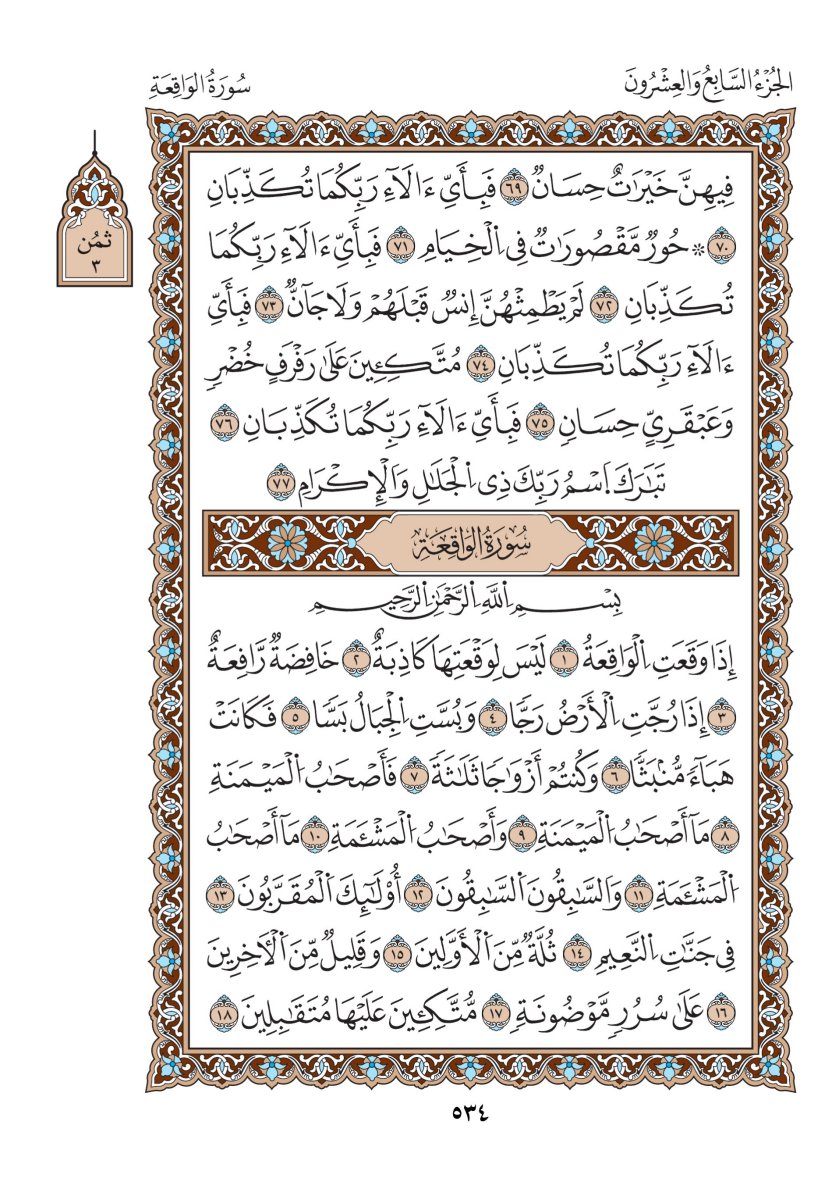 الجُزْءُ السَّابِعُ وَالعِشْرُونَ
سُورَةُ الوَاقِعَةِ
ثمُن
٣
فِيهِنَّ خَيْرَاتٌ حِسَانٌ ٦٩ فَبِأَيِّ ءَالَآءِ رَبِّكُمَا تُكَذِّبَانِ
٧٠ * حُورٌ مَّقْصُورَاتٌ فِي اِ۬لْخِيَامِ ٧١ فَبِأَيِّ ءَالَآءِ رَبِّكُمَا
تُكَذِّبَانِ ٧٢ لَمْ يَطْمِثْهُنَّ إِنسٌ قَبْلَهُمْ وَلَا جَآنٌّ ٧٣ فَبِأَيِّ
ءَالَآءِ رَبِّكُمَا تُكَذِّبَانِ ٧٤ مُتَّكِـِٔينَ عَلَىٰ رَفْرَفٍ خُضْرٍ
وَعَبْقَرِيٍّ حِسَانٍ ٧٥ فَبِأَيِّ ءَالَآءِ رَبِّكُمَا تُكَذِّبَانِ ٧٦
تَبَٰرَكَ اَ۪سْمُ رَبِّكَ ذِي اِ۬لْجَلَٰلِ وَالْإِكْرَامِ ٧٧
سُورَةُ الوَاقِعَةِ
بِسْمِ اِ۬للَّهِ اِ۬لرَّحْمَٰنِ اِ۬لرَّحِيمِ
إِذَا وَقَعَتِ اِ۬لْوَاقِعَةُ ١ لَيْسَ لِوَقْعَتِهَا كَاذِبَةٌ ٢ خَافِضَةٌ رَّافِعَةٌ
٣ إِذَا رُجَّتِ اِ۬لْأَرْضُ رَجّٗا ٤ وَبُسَّتِ اِ۬لْجِبَالُ بَسّٗا ٥ فَكَانَتْ
هَبَآءٗ مُّنۢبَثّٗا ٦ وَكُنتُمْ أَزْوَٰجٗا ثَلَٰثَةٗ ٧ فَأَصْحَٰبُ اُ۬لْمَيْمَنَةِ
٨ مَآ أَصْحَٰبُ اُ۬لْمَيْمَنَةِ ٩ وَأَصْحَٰبُ اُ۬لْمَشْـَٔمَةِ ١٠ مَآ أَصْحَٰبُ
اُ۬لْمَشْـَٔمَةِ ١١ وَالسَّٰبِقُونَ اَ۬لسَّٰبِقُونَ ١٢ أُوْلَٰٓئِكَ اَ۬لْمُقَرَّبُونَ ١٣
فِي جَنَّٰتِ اِ۬لنَّعِيمِ ١٤ ثُلَّةٌ مِّنَ اَ۬لْأَوَّلِينَ ١٥ وَقَلِيلٌ مِّنَ اَ۬لْأٓخِرِينَ
١٦ عَلَىٰ سُرُرٍ مَّوْضُونَةٍ ١٧ مُّتَّكِـِٔينَ عَلَيْهَا مُتَقَٰبِلِينَ ١٨
٥٣٤